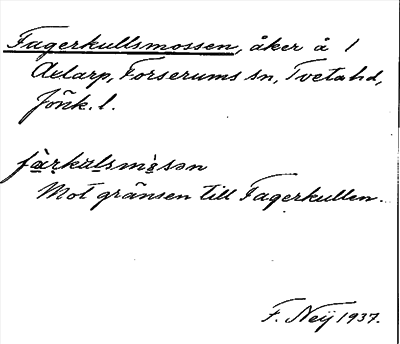 Fagerkullsmossen, åker å 1
Adarp, Forserums sn, Tveta hd,
Jönk. l.
fàrkulsmosən
Mot gränsen till Fagerkullen.
F. Neÿ 1937.